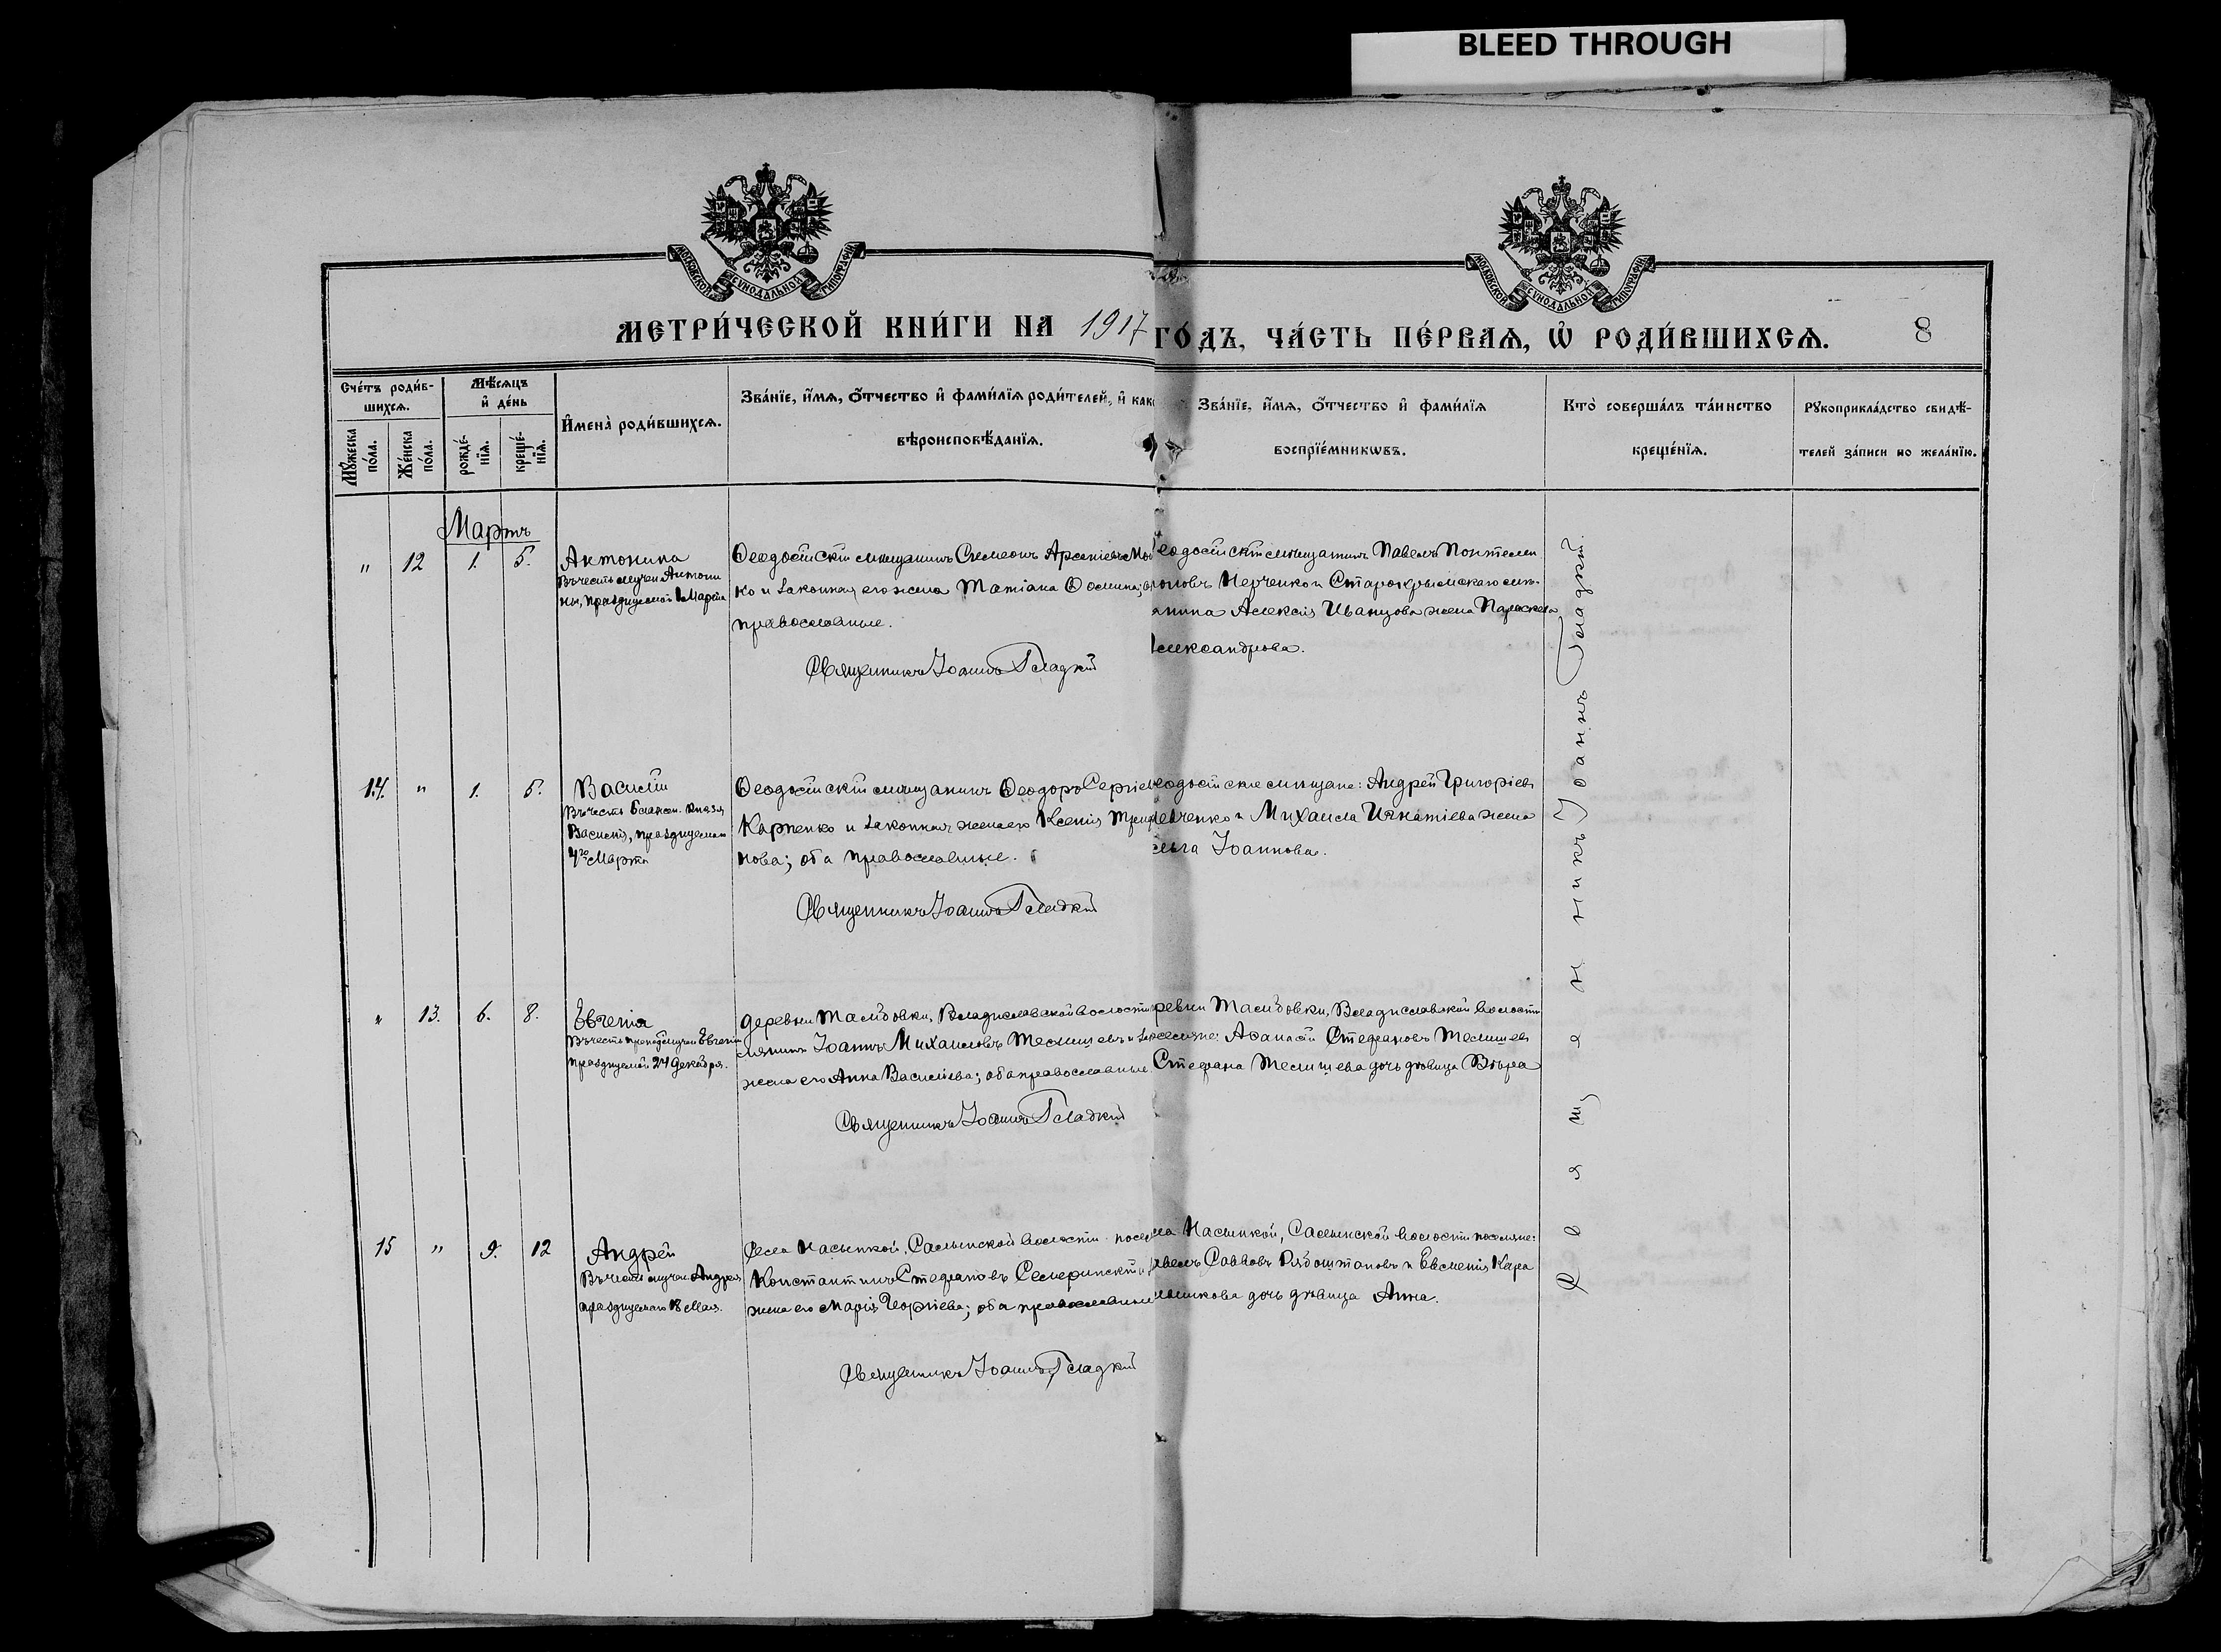 BLEED THROUGH
МОСКОВСКОЙ СУНОДАЛЬНОЙ ТИПОГРАФІИ
МОСКОВСКОЙ СУНОДАЛЬНОЙ ТИПОГРАФІИ
МЕТРИ́ЧЕСКОЙ КНИ́ГИ НА 1917
ГО́ДЪ, ЧА́СТЬ ПЕ́РВАѦ, Ѿ РОДИ́ВШИХСѦ.
8
Сче́тъ роди́в-
шихсѧ.
Мꙋ́жеска
по́ла.
Же́нска
по́ла.
Мѣ́сѧцъ
и҆ де́нь
рожде́-
нїѧ.
креще́-
нїѧ.
И҆мена̀ роди́вшихсѧ.
Зва́нїе, и҆́мѧ, ѻ҆́тчество и҆ фами́лїѧ роди́телей, и҆ како
вѣроисповѣ́данїѧ.
Зва́нїе, и҆́мѧ, ѻ҆́тчество и҆ фами́лїѧ
воспрїе́мникѡвъ.
Кто̀ соверша́лъ та́инство
креще́нїѧ.
Рꙋкоприкла́дство свидѣ́-
телей за́писи по жела́нїю.
Мартъ
" 12 1. 5. Антонина
Въ честь мучен. Антони
ны, празднуемой 1 Марта
Ѳеодосійскій мѣщанинъ Симеонъ Арсеніевъ
ко и законная его жена Татіана Ѳомина;
православные.
Священникъ Іоаннъ Гладкій
еодосійскій мѣщанинъ Павелъ Пантелеи
оновъ Нерченко и Старокрымскаго мѣщ-
анина Алексія Иванцова жена Параскева
лександрова.
14. " 1. 5. Василій
Въ честь блажен. князя
Василія, празднуемаго
4го Марта
Ѳеодосійскій мѣщанинъ Ѳеодоръ Сергіев
Карпенко и законная жена его Ксенія
нова; оба православные.
Священникъ Іоаннъ Гладкій
еодосійскіе мѣщане: Андрей Григоріевъ
евченко и Михаила Игнатіева жена
льга Іоаннова.
" 13. 6. 8. Евгенія
Въ честь преподмучен Евгеніи
празднуемой 24 декабря.
деревни Тамбовки, Владиславской волости
Іоаннъ Михаиловъ Темишевъ и
жена его Анна Васильева; оба православные
Священникъ Іоаннъ Гладкій
ревни Тамбовки, Владиславской волости
поселяне: Аѳанасій Стефановъ Темишевъ
Стефана Темишева дочь дѣвица Вѣра
15 " 9. 12 Андрей
Въ честь мучен. Андрея
празднуемаго 18 Мая.
Села Насыпкой, Салынской волости
Константинъ Стефановъ Семеринскій и
жена его Марія Георгіева; оба православные
Священникъ Іоаннъ Гладкій
ла Насыпкой, Салынской волости поселяне:
авелъ Савовъ Рябоштановъ и Евсевія Кара
ышикова дочь дѣвица Анна.
Священникъ Іоаннъ Гладкій